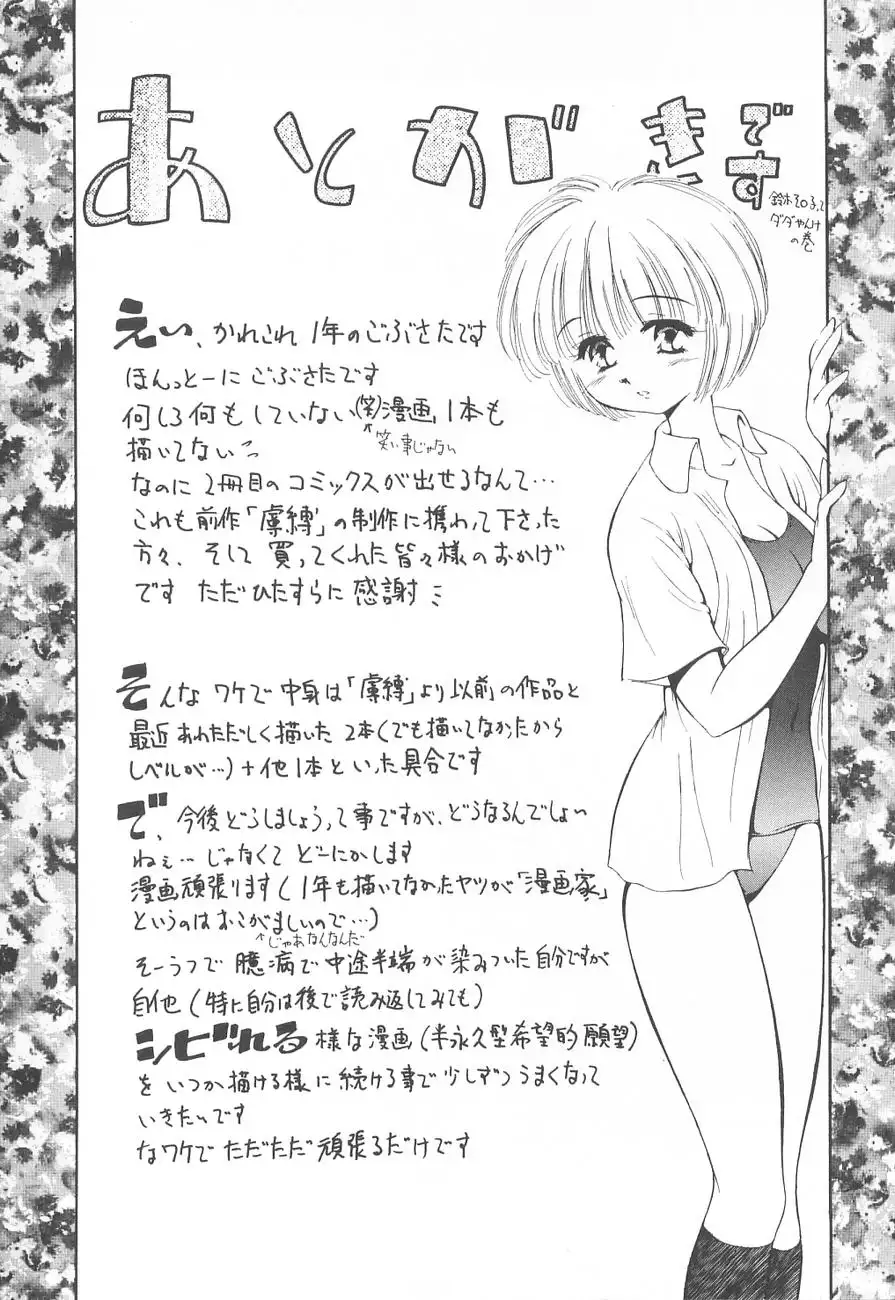 あとがきです
ダダやんけ
の巻
えい、かれこれ 1年のごぶさたです
ほんっとーに ごぶさたです
何しろ何もしていない(笑)漫画1本も
笑い事じゃない
描いてないっ
なのに 2冊目のコミックスが出せるなんて…
これも前作「虜縛」の制作に携わって下さった
方々、そして 買ってくれた皆々様のおかげ
です ただひたすらに 感謝
そんな ワケで 中身は「虜縛」より以前の作品と
最近 あわただしく描いた 2本(でも描いてなかったから
レベルが…)+他1本といった具合です
で、今後どうしましょうって事ですが、どうなるんでしょい
ねぇ…じゃなくて どーにかします
漫画頑張ります(1年も描いてなかったヤツが「漫画家」
というのはおこがましいので…)
じゃあなんなんだ
そーうつで 臆病で 中途半端が染みついた自分ですが
自他(特に自分は後で読み返してみても)
シビれる様な漫画(半永久型希望的願望)
を いつか描ける様に 続ける事で少しずつうまくなって
いきたいです
なワケで ただただ頑張るだけです